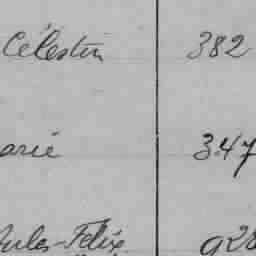 Célestin 382
arie 347
Jules-Félix 928